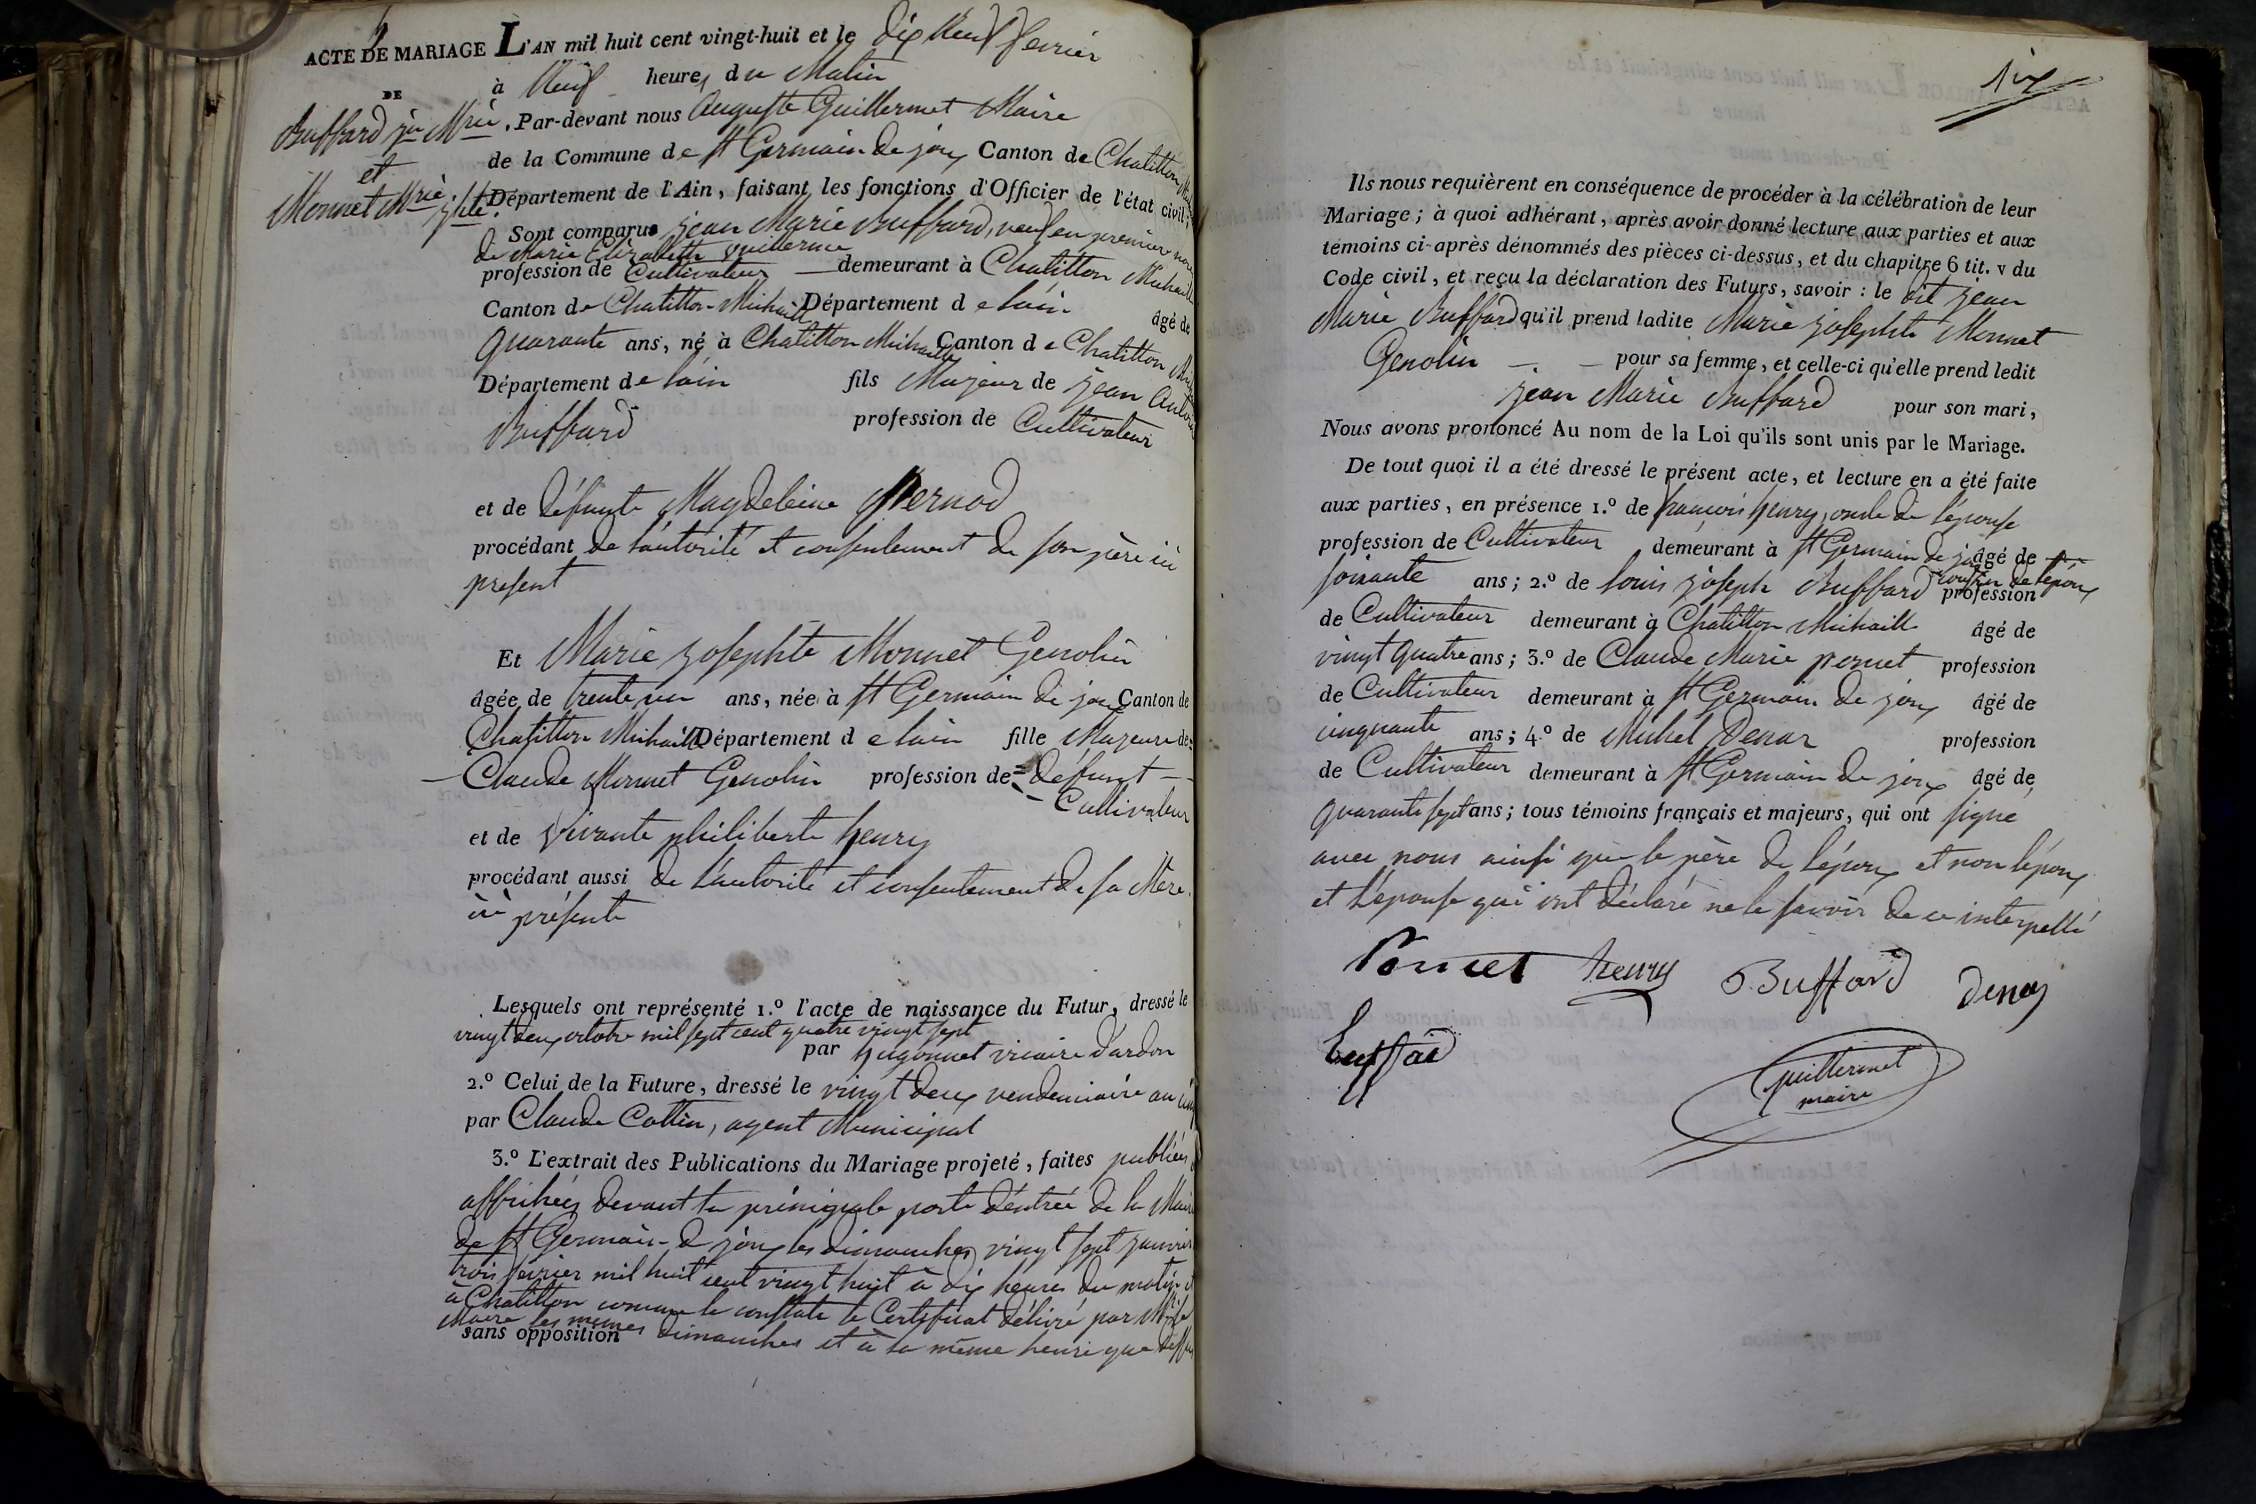 ACTE DE MARIAGE L'AN mil huit cent vingt-huit et le dix Neuf fevrier
à Neuf heures du Matin
DE
Buffard jn Mrie
et
Monnet Mrie jphte
Par-devant nous Auguste Guillermet Maire
de la Commune de st Germain de joux Canton de Chatillon
Département de l'Ain, faisant les fonctions d'Officier de l'état civil;
Sont comparus jean Marie Buffard, veuf en premier
de Marie Elizabeth
profession de Cultivateur demeurant à Chatillon Michaille
Canton de Chatillon-Michaille Département de lain âgé de
quarante ans, né à Chatillon Michaille Canton de Chatillon
Département de lain fils Majeur de jean Antoine
Buffard profession de Cultivateur
et de défunte Magdeleine Mernod
procédant de l'autorité et consentement de son père ici
present
Et Marie josephte Monnet Genolin
âgée de trente un ans, née à st Germain de joux Canton de
Chatillon Michaille Département de lain fille Majeure de
Claude Monnet Genolin profession de = défunt
Cultivateur
et de vivante philiberte henry
procédant aussi de l'autorité et consentement de sa Mère
ici présente
Lesquels ont représenté 1.º l'acte de naissance du Futur, dressé le
vingt deux octobre mil sept cent quatre vingt sept
par hugonnet vicaire d'ardon
2.º Celui de la Future, dressé le vingt deux vendemiaire an cinq
par Claude Cottin, agent Municipal
3.º L'extrait des Publications du Mariage projeté, faites publiées
affichées devant la principale porte d'entrée de la Mairie
de st Germain de joux les dimanches vingt sept janvier
trois février mil huit cent vingt huit à dix heures du matin et
à Chatillon comme le constate le Certificat délivré par Mr le
Maire les mêmes dimanches et à la même heure que dessus
sans opposition
six
Ils nous requièrent en conséquence de procéder à la célébration de leur
Mariage; à quoi adhérant, après avoir donné lecture aux parties et aux
témoins ci-après dénommés des pièces ci-dessus, et du chapitre 6 tit. v du
Code civil, et reçu la déclaration des Futurs, savoir: le dit jean
Marie Buffard qu'il prend ladite Marie josephte Monnet
Genolin pour sa femme, et celle-ci qu'elle prend ledit
jean Marie Buffard pour son mari,
Nous avons prononcé Au nom de la Loi qu'ils sont unis par le Mariage.
De tout quoi il a été dressé le présent acte, et lecture en a été faite
aux parties, en présence 1.º de françois henry, oncle de l'épouse
profession de Cultivateur demeurant à st Germain de joux âgé de
soixante ans; 2.º de louis joseph Buffard cousin de l'époux profession
de Cultivateur demeurant à Chatillon Michaille âgé de
vingt quatre ans; 3.º de Claude Marie ponet profession
de Cultivateur demeurant à st Germain de joux âgé de
cinquante ans; 4.º de Michel Denar profession
de Cultivateur demeurant à st Germain de joux âgé de
quarante sept ans; tous témoins français et majeurs, qui ont signé
avec nous ainsi que le père de l'époux et non l'époux
et l'épouse qui ont déclaré ne le savoir de ce interpellé
henry Buffard
Buffard
Guillermet
maire